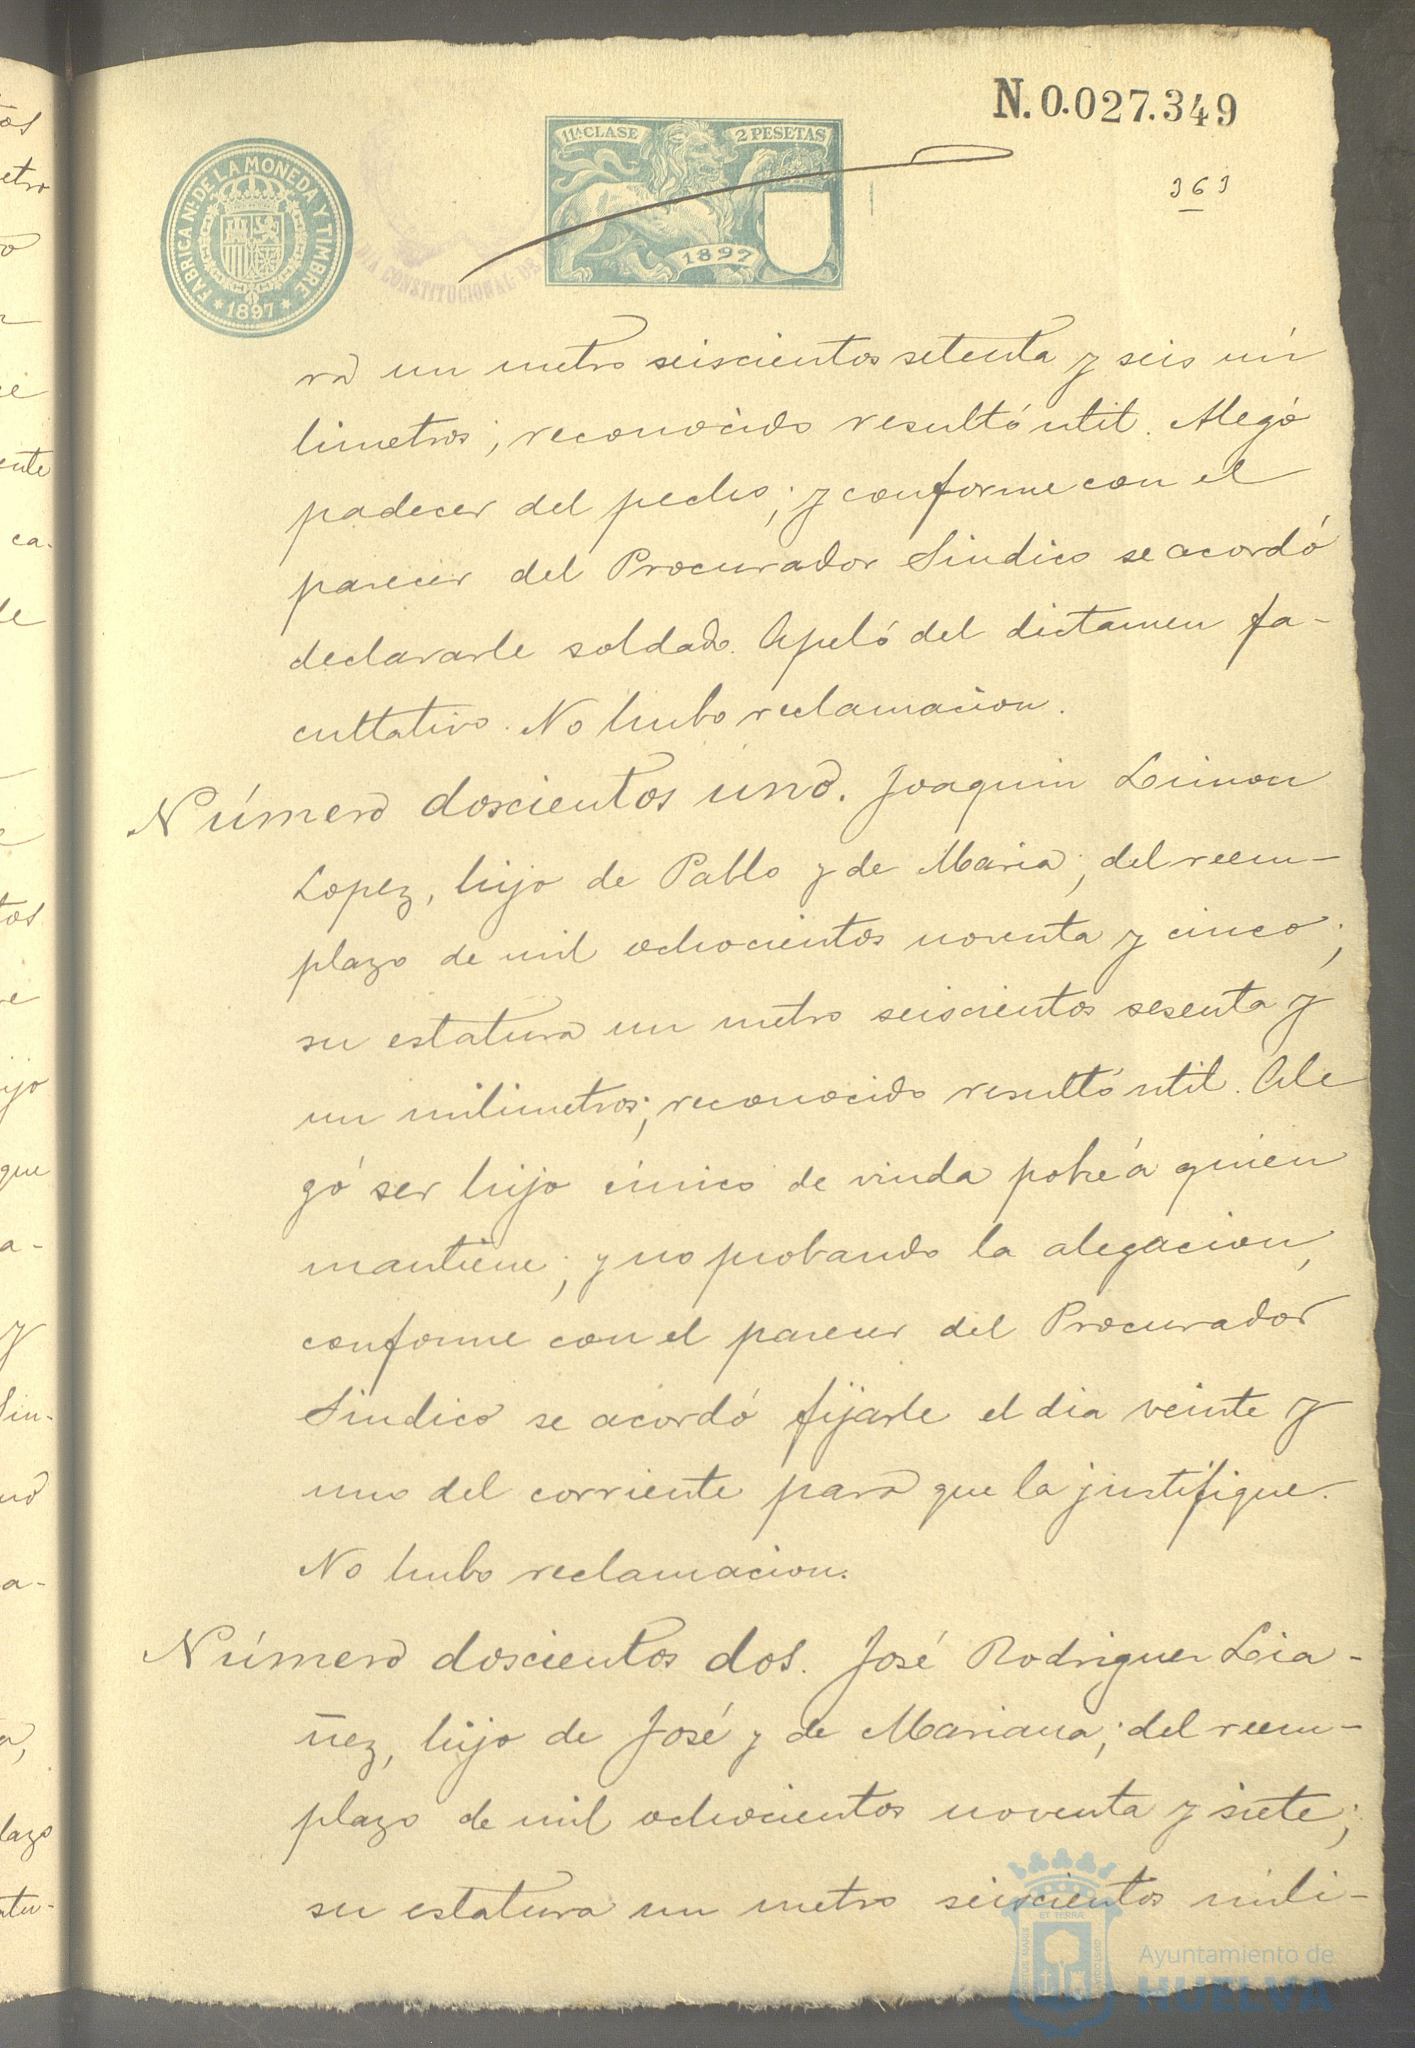 N. 0.027.349
363
11ª CLASE 2 PESETAS
1897
FABRICA NL. DE LA MONEDA Y TIMBRE
* 1897 *
CONSTITUCIONAL DE
ra un metro seiscientos setenta y seis mi
limetros; reconocido resultó util. Alegó
padecer del pecho; y conforme con el
parecer del Procurador Sindico se acordó
declararle soldado. Apeló del dictamen fa-
cultativo. No hubo reclamacion.
Número doscientos uno. Joaquin Limon
Lopez, hijo de Pablo y de Maria; del reem-
plazo de mil ochocientos noventa y cinco;
su estatura un metro seiscientos sesenta y
un milimetros; reconocido resultó util. Ale
gó ser hijo único de viuda pobre á quien
mantiene; y no probando la alegacion,
conforme con el parecer del Procurador
Sindico se acordó fijarle el dia veinte y
uno del corriente para que la justifique.
No hubo reclamacion.
Número doscientos dos. José Rodriguez Lia-
ñez, hijo de José y de Mariana; del reem-
plazo de mil ochocientos noventa y siete;
su estatura un metro seiscientos mili-
Ayuntamiento de
HUELVA